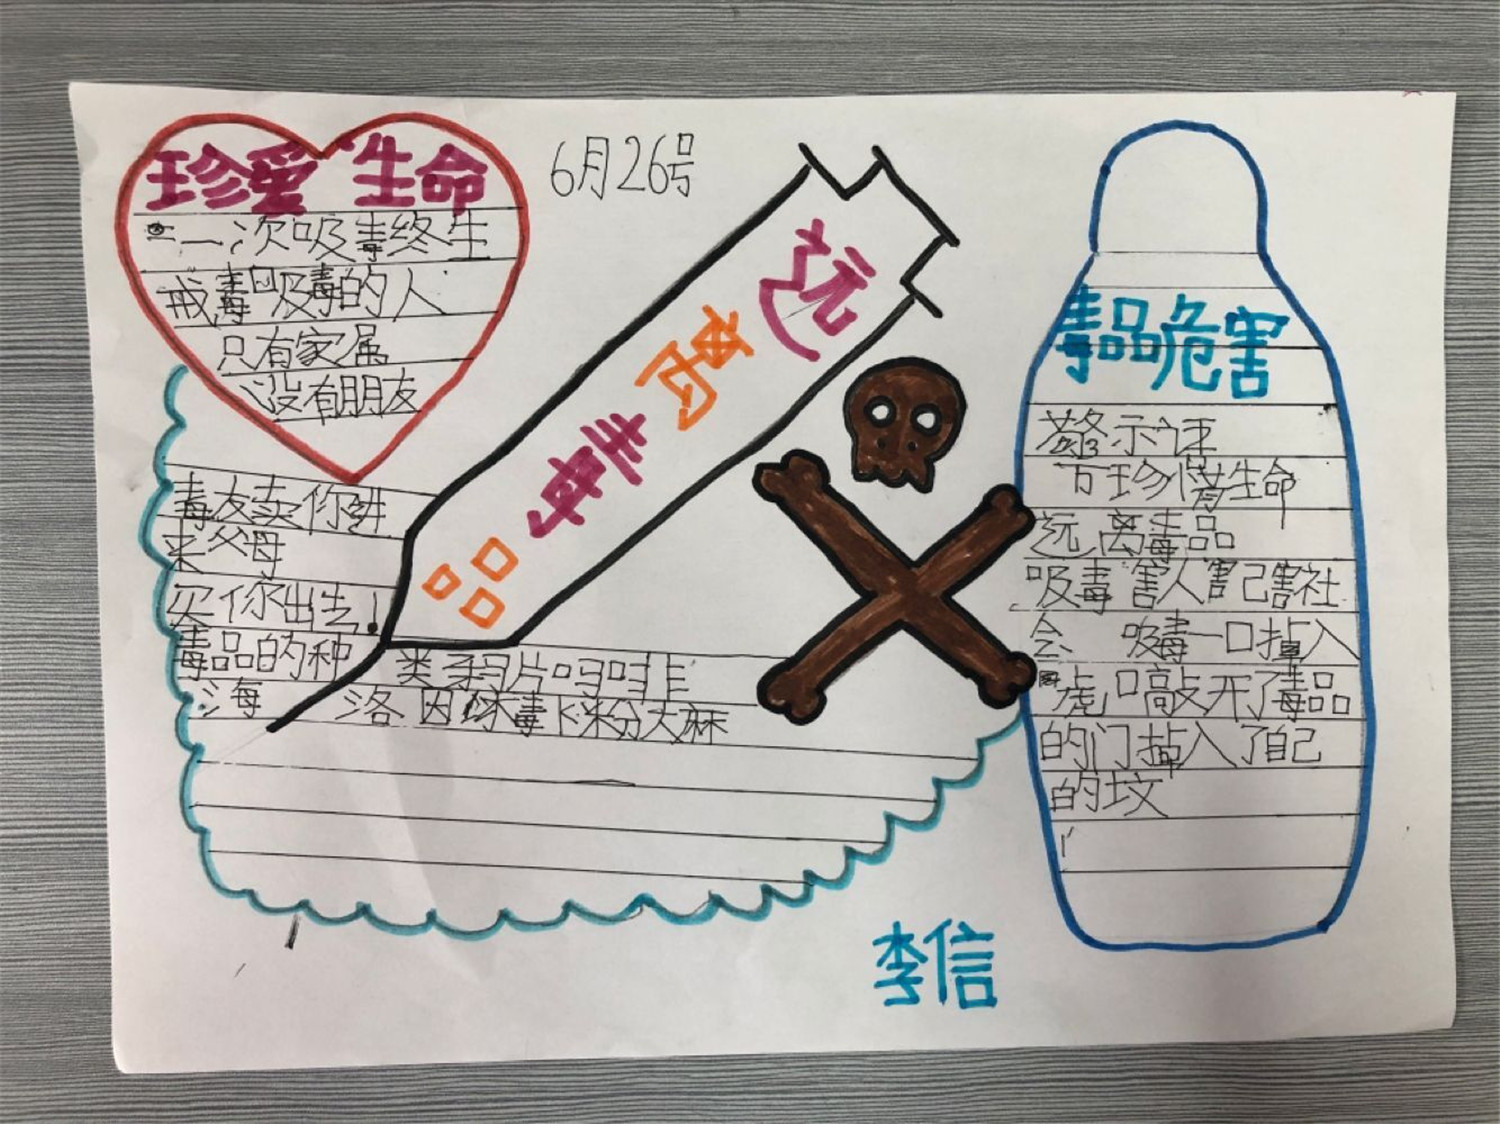 珍爱生命
一次吸毒终生
戒毒吸毒的人
只有家属
没有朋友
6月26号
远离毒品
毒友卖你进
来父母
买你出生!
毒品的种类 吗啡
海洛因 冰毒 大麻
毒品危害
警示证
珍惜生命
远离毒品
吸毒害人害己害社
会 吸毒一口掉入
虎口敲开了毒品
的门掉入了自己
的坟
李信